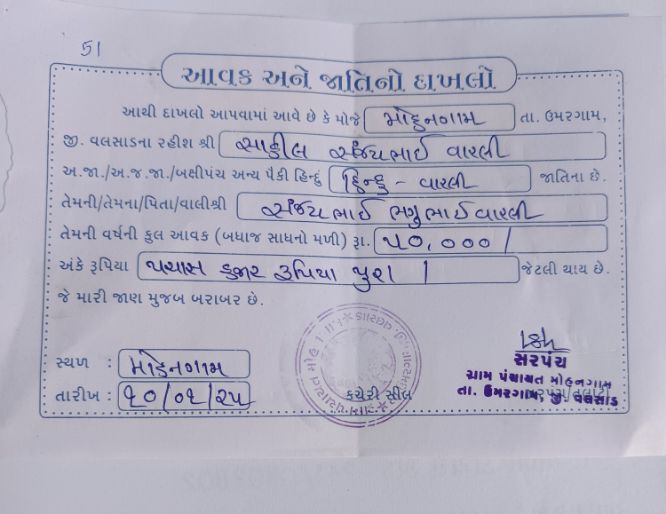 51
આવક અને જાતિનો દાખલો
આથી દાખલો આપવામાં આવે છે કે મોજે મોહનગામ તા. ઉમરગામ,
જી. વલસાડના રહીશ શ્રી સાહીલ સંજયભાઈ વારલી
અ.જા./અ.જ.જા./બક્ષીપંચ અન્ય પૈકી હિન્દુ હિન્દુ - વારલી જાતિના છે.
તેમની/તેમના/પિતા/વાલીશ્રી સંજયભાઈ ભગુભાઈ વારલી
તેમની વર્ષની કુલ આવક (બધાજ સાધનો મળી) રૂા. ૫૦,૦૦૦/
અંકે રૂપિયા પચાસ હજાર રૂપિયા પુરા / જેટલી થાય છે.
જે મારી જાણ મુજબ બરાબર છે.
સ્થળ : મોહનગામ
તારીખ : ૧૦/૦૧/૨૫
કચેરી સીલ
સરપંચ
ગ્રામ પંચાયત મોહનગામ
તા. ઉમરગામ, જી. વલસાડ